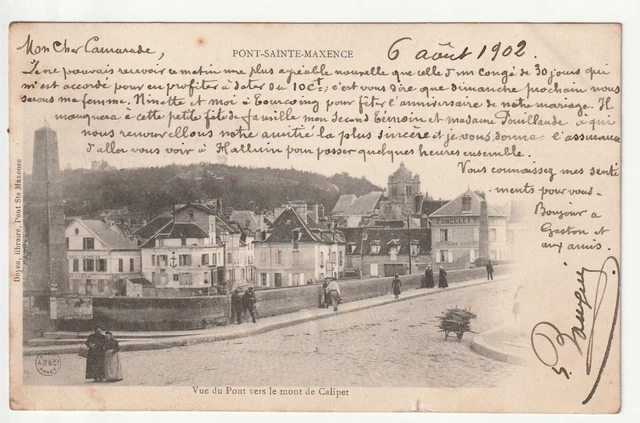 Mon Cher Camarade,
PONT-SAINTE-MAXENCE
6 août 1902.
Je ne pouvais recevoir ce matin une plus agréable nouvelle que celle d'un congé de 30 jours qui
m'est accordé pour en profiter à dater du 10 ct; c'est vous dire que dimanche prochain nous
serons ma femme, Ninette et moi à Tourcoing pour fêter l'anniversaire de notre mariage. Il
manquera à cette petite fête de famille mon second témoin et madame Pouillaude à qui
nous renouvellons notre amitié la plus sincère et je vous donne l'assurance
d'aller vous voir à Halluin pour passer quelques heures ensemble.
Vous connaissez mes senti
ments pour vous.
Bonjour a
Gaston et
aux amis.
Doyen, libraire, Pont Ste Maxence
Vue du Pont vers le mont de Calipet